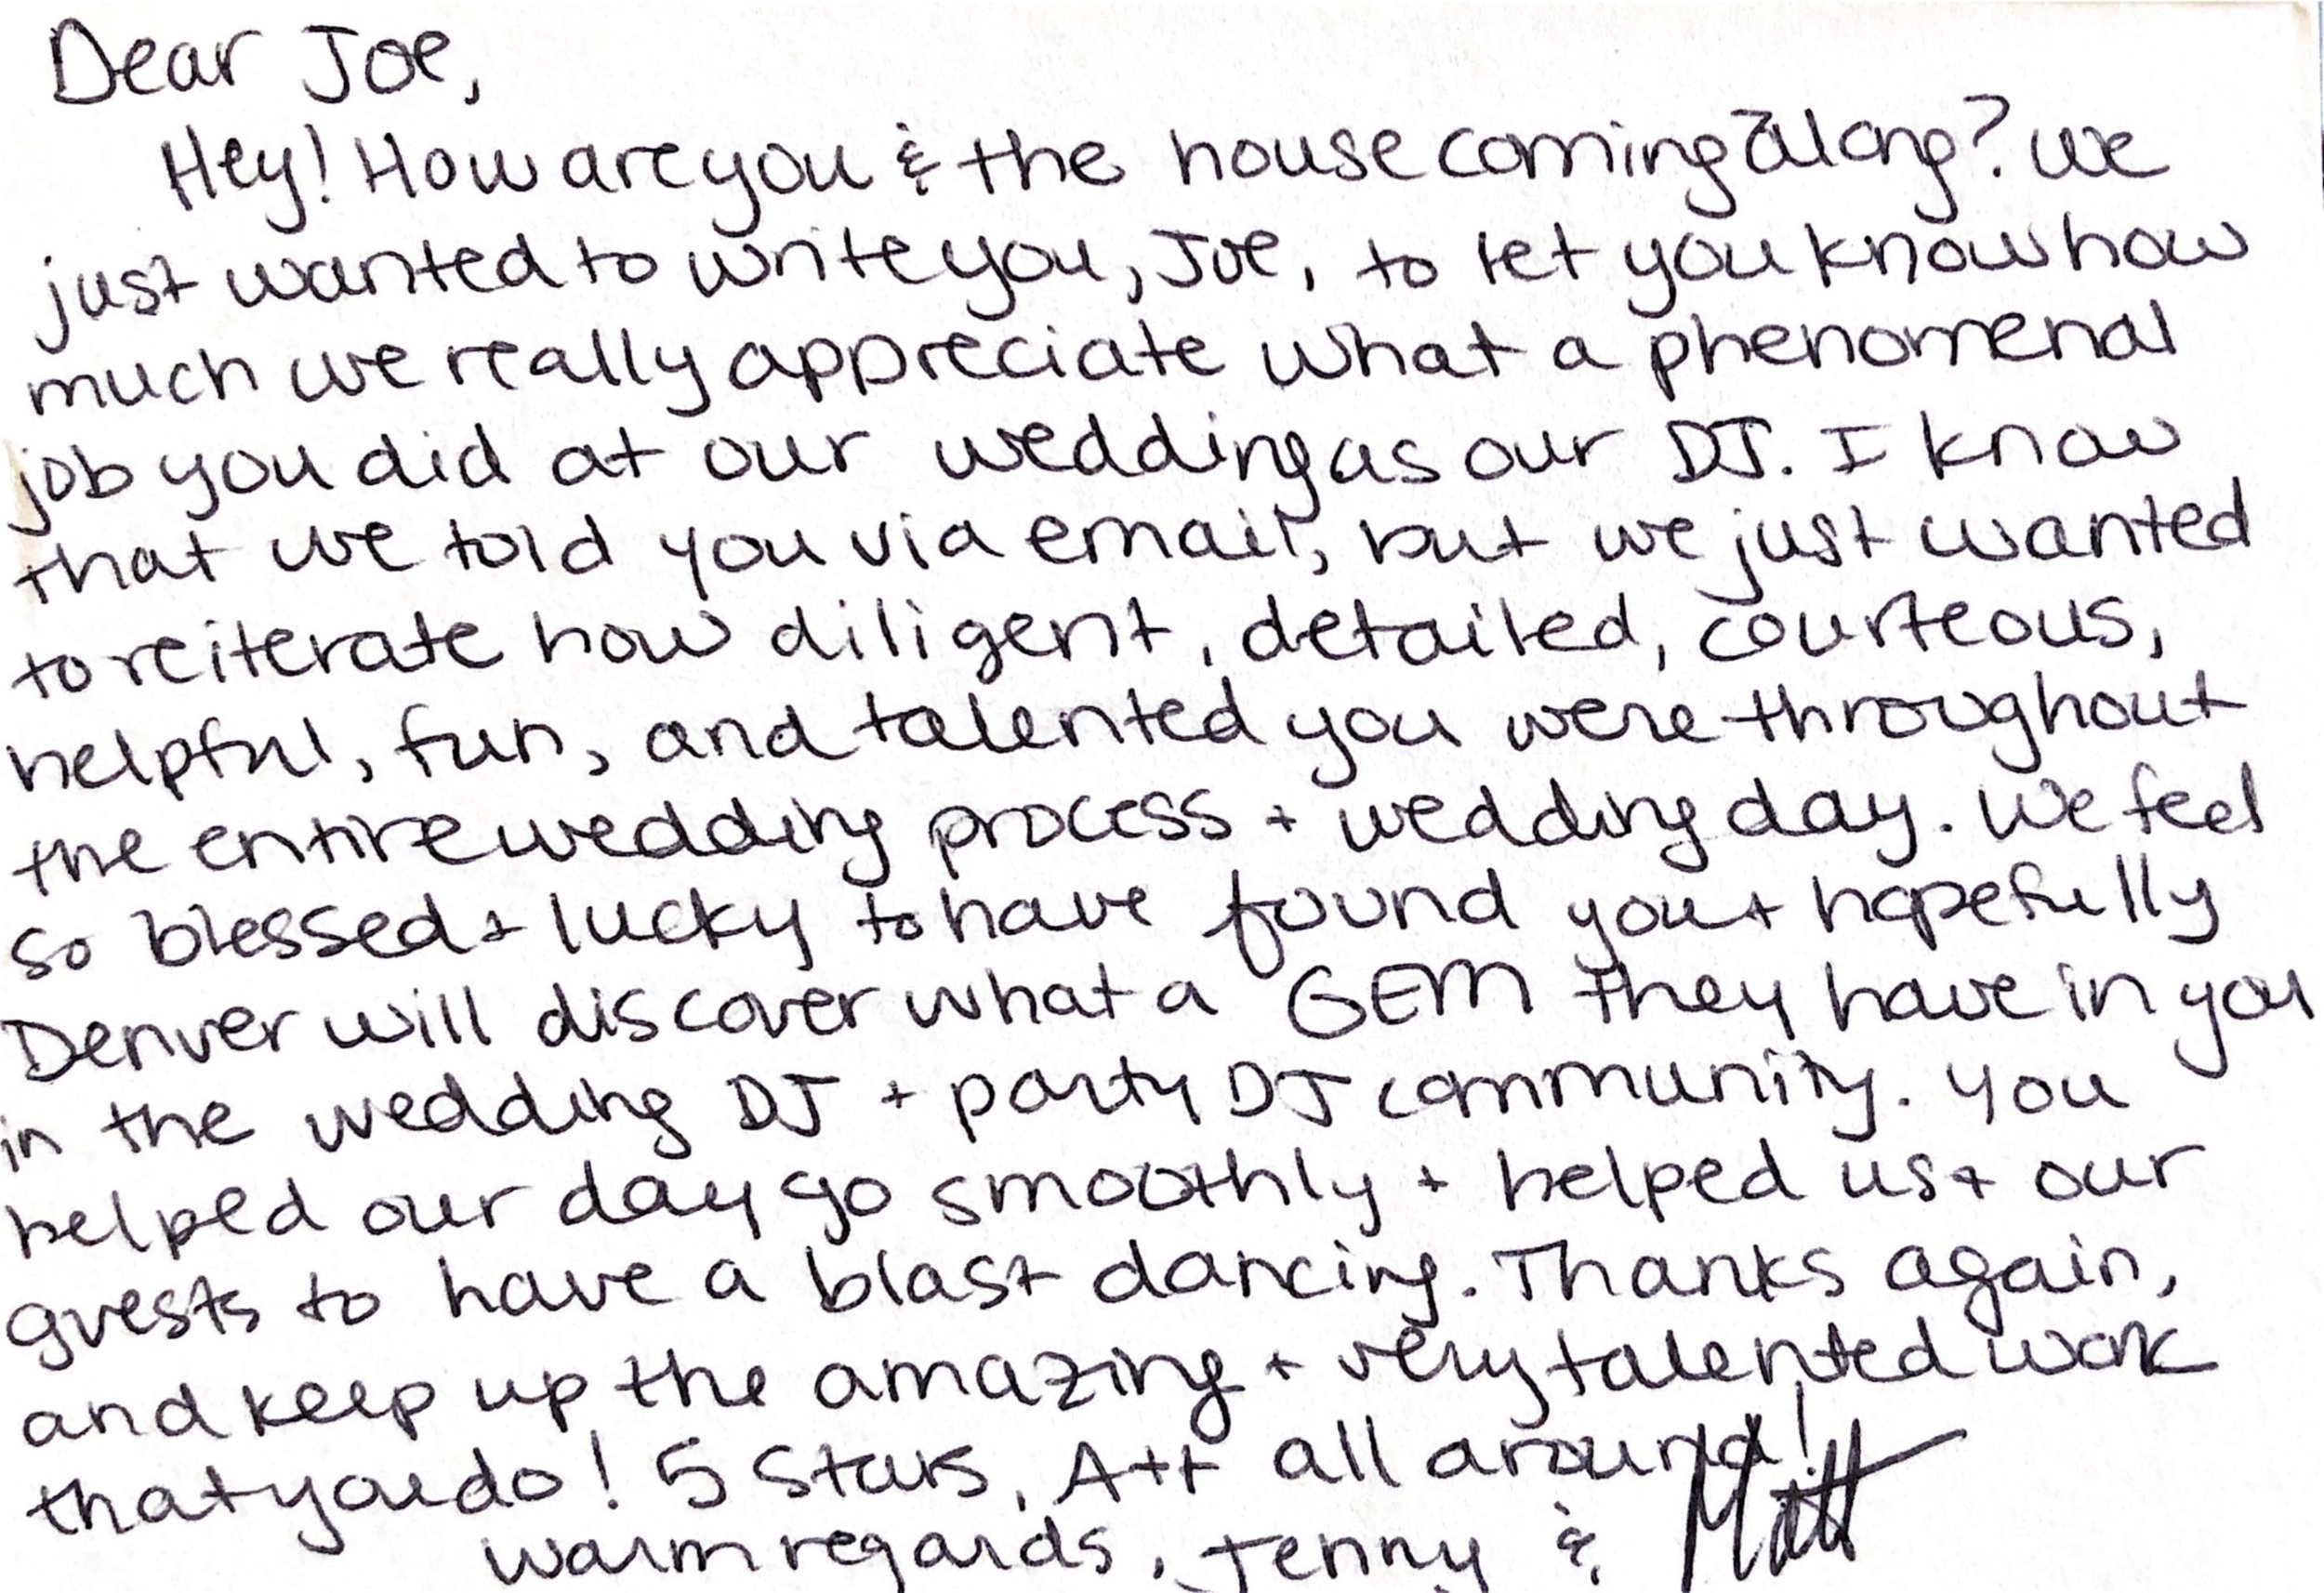 Dear Joe,
Hey! How are you & the house coming along? We
just wanted to write you, Joe, to let you know how
much we really appreciate what a phenomenal
job you did at our wedding as our DJ. I know
that we told you via email, but we just wanted
to reiterate how diligent, detailed, courteous,
helpful, fun, and talented you were throughout
the entire wedding process + wedding day. We feel
so blessed + lucky to have found you + hopefully
Denver will discover what a GEM they have in you
in the wedding DJ + party DJ community. You
helped our day go smoothly + helped us + our
guests to have a blast dancing. Thanks again,
and keep up the amazing + very talented work
that you do! 5 Stars, A++ all around!
Warm regards, Jenny & Matt